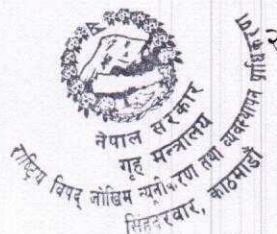 नेपाल सरकार
गृह मन्त्रालय
राष्ट्रिय विपद् जोखिम न्यूनीकरण तथा व्यवस्थापन प्राधिकरण
सिंहदरवार, काठमाडौं
२